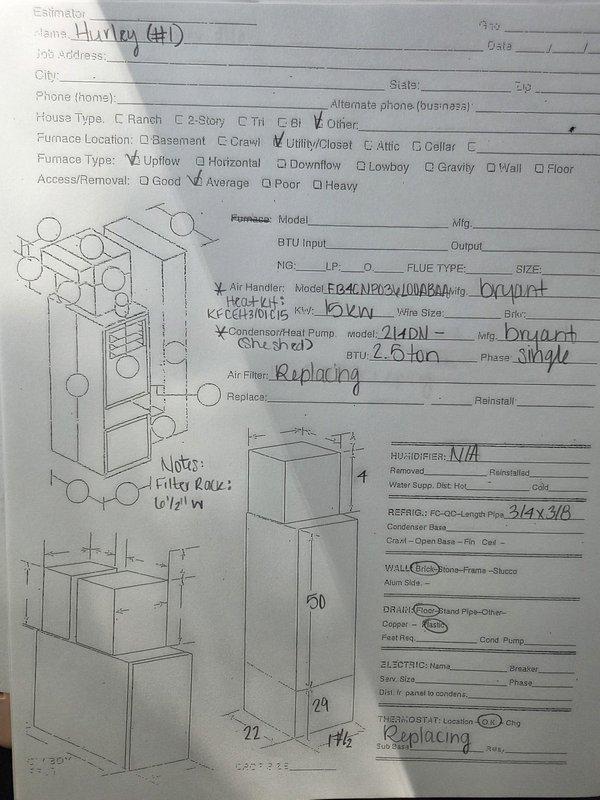 Estimator
Name Hurley (#1) Date / /
Job Address:
City: State: Zip
Phone (home): Alternate phone (business):
House Type. Ranch 2-Story Tri Bi Other:
Furnace Location: Basement Crawl Utility/Closet Attic Cellar
Furnace Type: Upflow Horizontal Downflow Lowboy Gravity Wall Floor
Access/Removal: Good Average Poor Heavy
Furnace: Model Mfg.
BTU Input Output
NG: LP: O. FLUE TYPE: SIZE:
* Air Handler: Model Mfg. bryant
Heat Kit:
KFCEH3101C15 KW: 15KW Wire Size: Brkr:
* Condensor/Heat Pump. model: 214DN - Mfg. bryant
(She shed)
BTU: 2.5 ton Phase single
Air Filter: Replacing
Replace: Reinstall:
Notes:
Filter Rack:
6 1/2" W
4
50
29
22
17 1/2
HUMIDIFIER: N/A
Removed Reinstalled
Water Supp. Dist: Hot Cold
REFRIG.: FC-QC-Length Pipe 3/4 X 3/8
Condenser Base
Crawl - Open Base - Fin Ceil -
WALL: Brick-Stone-Frame-Stucco
Alum Side. -
DRAIN: Floor-Stand Pipe-Other-
Copper - Plastic
Feet Req. Cond Pump
ELECTRIC: Name Breaker
Serv. Size Phase
Dist. fr panel to condens.
THERMOSTAT: Location - O.K. - Chg
Replacing
Sub Base Res.